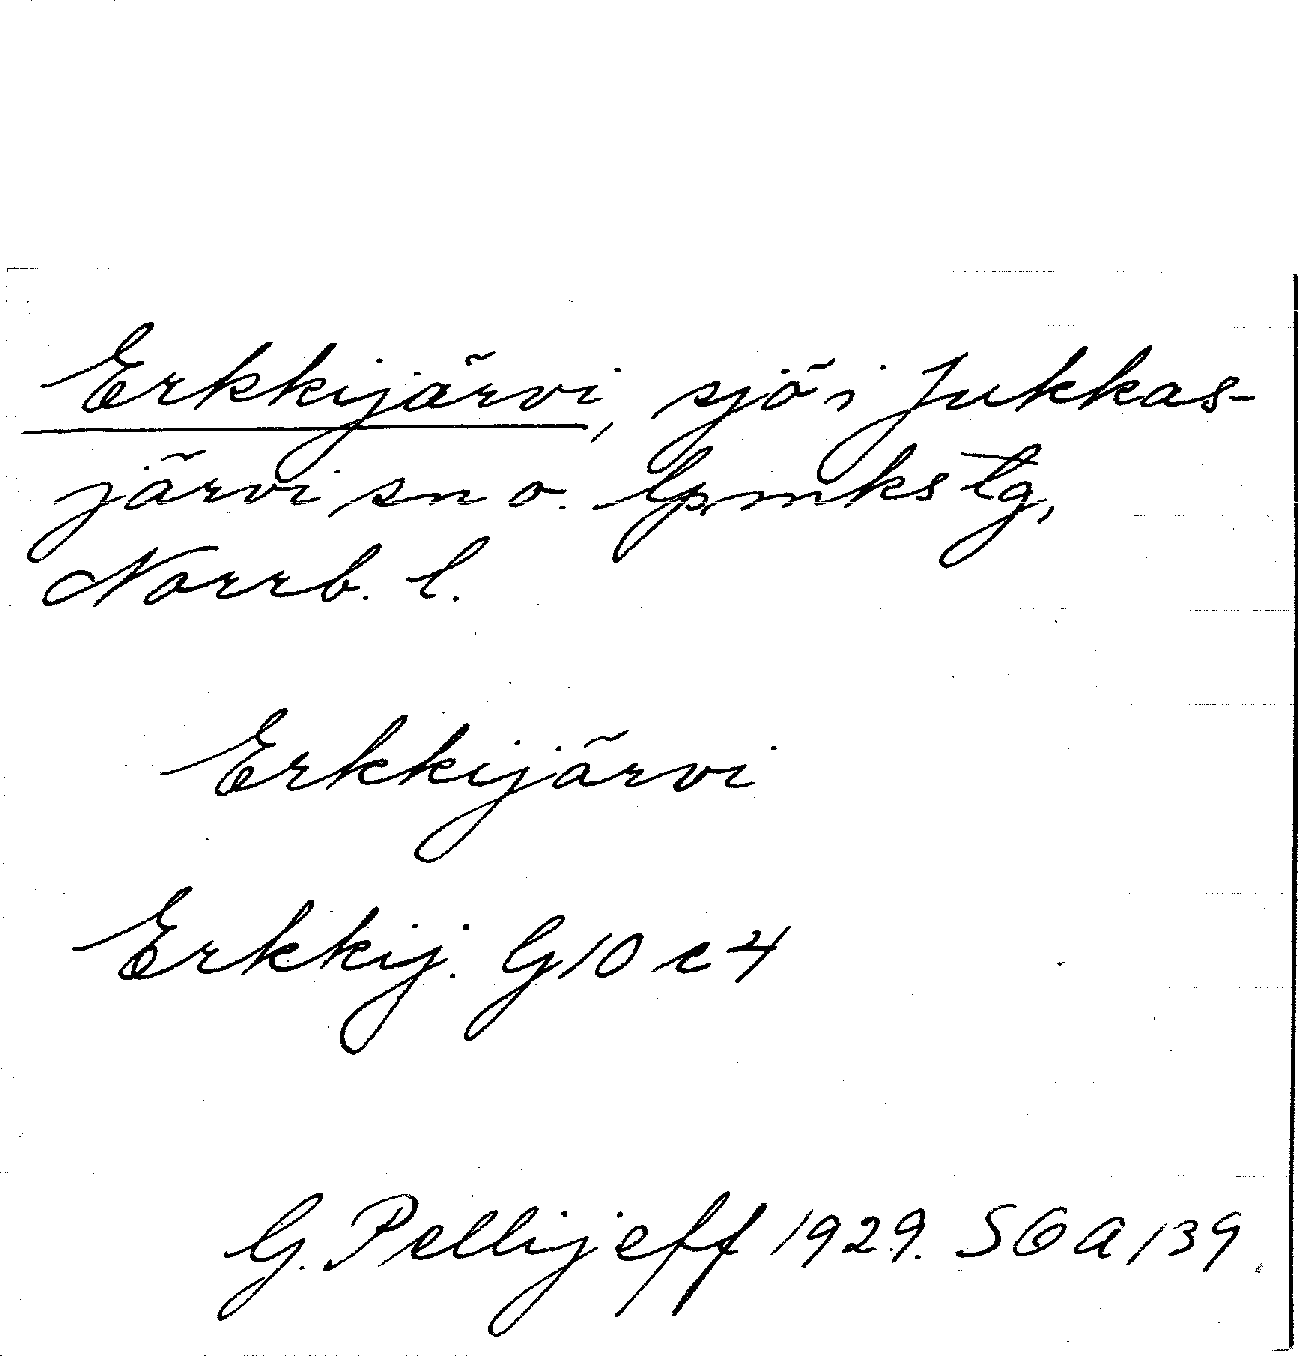 Erkkijärvi, sjö i Jukkas-
järvi sn o. lpmkstg,
Norrb. l.
Erkkijärvi
Erkkij. G 10 c 4
G. Pellijeff 1929. SOA 139.